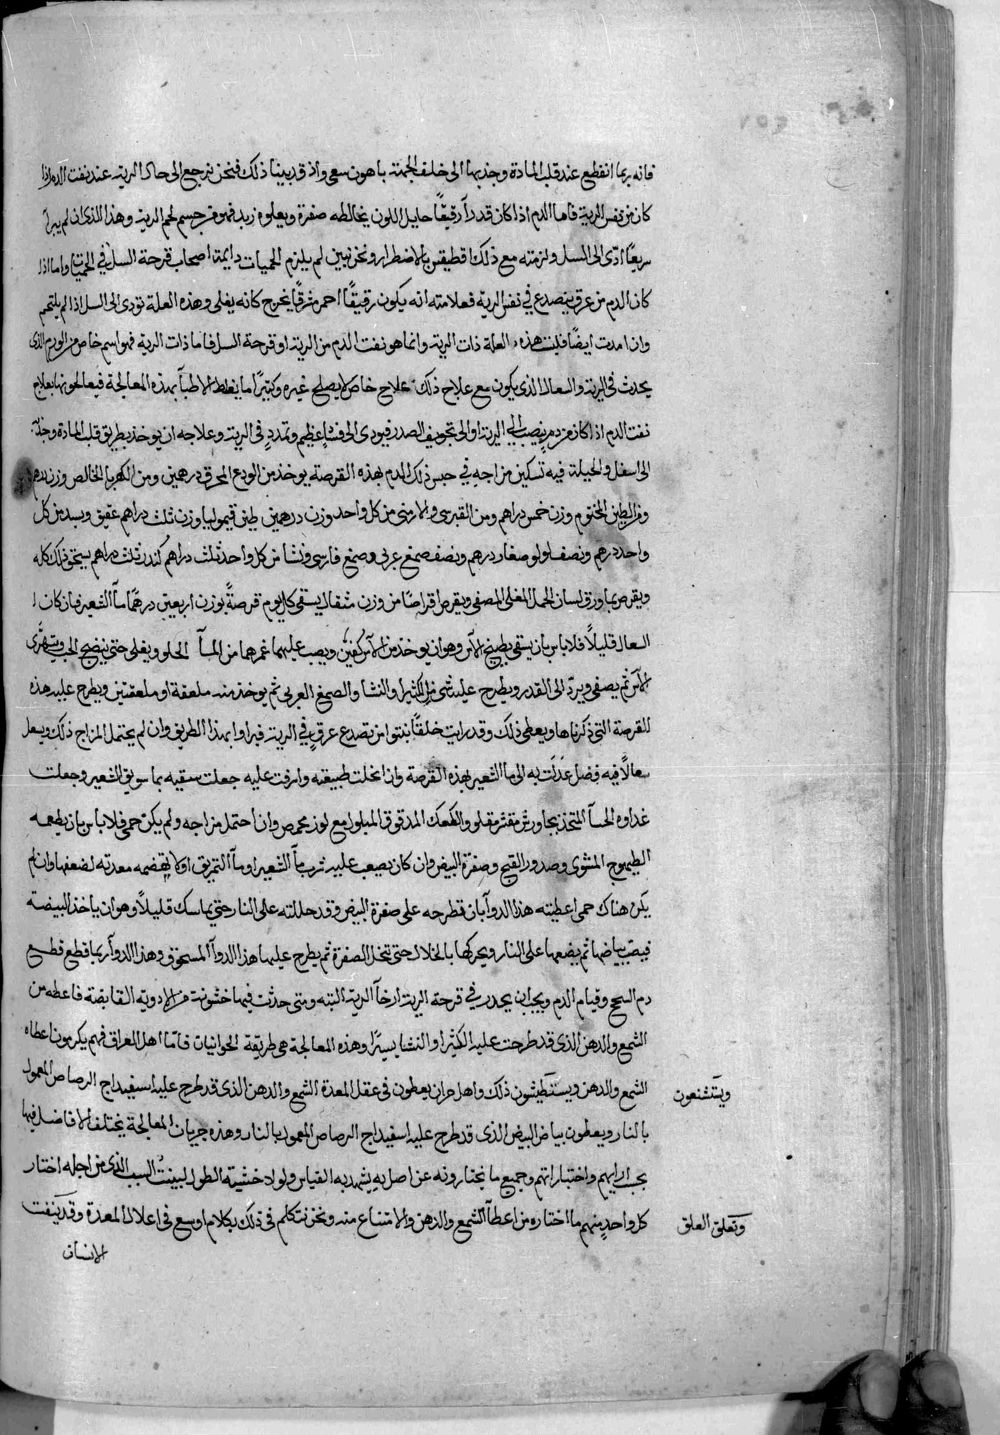 فانه ربما انقطع عند قلب المادة وجذبها الى خلف الجهة باهون سعى واذ قد بينا ذلك فنحن نرجع الى حال الرية عند نفث الدم اذا
كان من نفس الرية فاما الدم اذا كان قدرا رقيقًا حايل اللون يخالطه صفرة ويعلوه زبد فهو من جسم لحم الرية وهذا الذى ان لم يبرأ
سريعًا ادّى الى السل ولزمته مع ذلك قطيقس بالاضطرار ونحن نبين لم يلزم الحميات دايمة اصحاب قرحة السل في الحميات واما اذا
كان الدم من عرق يتصدع في نفس الرية فعلامته انه يكون رقيقًا احمر مشرقًا يخرج كانه يغلى وهذه العلة تودى الى السل اذا لم يلتحم
وان امدت ايضًا فليست هذه العلة ذات الرية وانما هو نفث الدم من الرية او قرحة السل فاما ذات الرية فهو اسم خاص من الورم الذى
يحدث في الرية والسعال الذى يكون مع علاج ذلك علاج خاص لا يصلح غيره وكثيرًا ما يغلط الاطبآ بهذه المعالجة فيعالجونها بعلاج
نفث الدم اذا كان من دم ينصب الى الرية او الى تجويف الصدر فيودى الى فساد عظيم وتمدد في الرية وعلاجه ان يوخذ بطريق قلب المادة وجذبه
الى اسفل والحيلة فيه تسكين مزاجه في حبس ذلك الدم بهذه القرصة يوخذ من الودع المحرق درهمين ومن الكهربا الخالص وزن درهم
ومن الطين المختوم وزن خمس دراهم ومن القبرسى والارمنى من كل واحد وزن درهمين طين قيموليا وزن ثلث دراهم عقيق وبسد من كل
واحد درهم ونصف لولو صغار درهم ونصف صمغ عربى وصمغ فارسى ونشا من كل واحد ثلث دراهم كندر ثلث دراهم يسحق ذلك كله
ويقرص بما ورق لسان الحمل المغلى المصفى ويقرص اقراصًا من وزن مثقال يسقى كل يوم قرصةً بوزن اربعين درهمًا مآ الشعير فان كان
السعال قليلًا فلا باس بان يسقى بطبيخ الآس وهو ان يوخذ من الآس كفين ويصب عليهما غمرهما من المآ الحلو ويغلى حتى ينضج الحب ويتهرّى
الآس ثم يصفى ويردّ الى القدر ويطرح عليه شى من الكثيرا والنشا والصمغ العربى ثم يوخذ منه ملعقة او ملعقتين ويطرح عليه هذه
القرصة التي ذكرناها ويعطى ذلك وقد رايت خلقًا نفثوا من تصدع عرق في الرية فبراوا بهذا الطريق وان لم يحتمل المزاج ذلك ويسعل
سعالًا فيه فضل عدلت به الى ما الشعير بهذه القرصة وان انحلت طبيعته واسرفت عليه جعلت سقيه بما سويق الشعير وجعلت
غداوه الحسآ المتخذ بجاورش مقشر مقلو والكعك المدقوق المبلول مع لوز محمص وان احتمل مزاجه ولم يكن حمى فلا باس بان يطعمه
الطيهوج المشوى وصدور القبج وصفرة البيض وان كان يصعب عليه شرب مآ الشعير او مآ التمريق او لا يهضمه معدته لضعفها وان لم
يكن هناك حمى اعطيته هذا الدوآ بان تطرحه على صفرة البيض وقد حللته على النار حتى يماسك قليلًا وهو ان ياخذ البيضة
فيصب بياضها ثم يضعها على النار ويحركها بالخلال حتى تنحل الصفرة ثم يطرح عليها هذا الدوآ المسحوق وهذا الدوآ ربما قطع قطع
دم السحج وقيام الدم ويجب ان يحذر في قرحة الرية ارخآ الرية البتة ومتى حدثت فيها خشونة من الادوية القابضة فاعطه من
الشمع والدهن الذى قد طرحت عليه الكثيرا والنشا يسيرًا وهذه المعالجة هى طريقة الحرانيات فامّا اهل العراق فهم يكرهون اعطاه
الشمع والدهن ويستطيشون ذلك واهل حران يعطون في عقل المعدة الشمع والدهن الذى قد طرح عليه اسفيداج الرصاص المعمول
ويستشنعون
بالنار ويعطون بياض البيض الذى قد طرح عليه اسفيداج الرصاص المعمول بالنار وهذه جريان المعالجة يختلف الافاضل فيها
بحسب ارايهم واختياراتهم وجميع ما يختارونه عن اصل به يشهد به القياس ولولا خشية الطول لبينت السبب الذى من اجله اختار
كل واحد منهم ما اختاره من اعطآ الشمع والدهن والامتناع منه ونحن نتكلم في ذلك بكلام اوسع في اعلال المعدة وقد ينفث
وتعلق العلق
الانسان